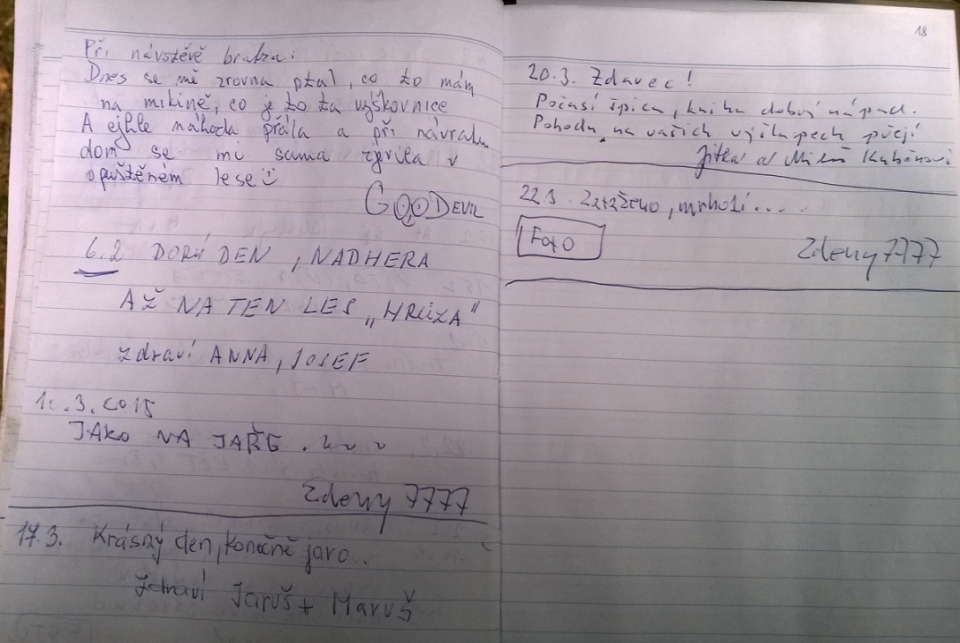 Při návštěvě bratra:
Dnes se mě zrovna ptal, co to mám
na mikině, co je to za výškovnice
A ejhle náhoda přála a při návratu
dom se mi sama zjevila v
opuštěném lese
GooDevil
6.2 DOBRÝ DEN, NADHERA
AŽ NA TEN LES „HRŮZA"
zdraví ANNA, JOSEF
10.3.2015
JAKO NA JAŘE.
Zdeny 7777
17.3. Krásný den, konečně jaro.
Zdraví Jaruš + Maruš
18
20.3. Zdavec!
Počasí špica, kniha dobrý nápad.
Pohodu na vašich výšlapech přejí
Jitka a Miloš
22.3. Zataženo, mrholí....
Foto
Zdeny 7777